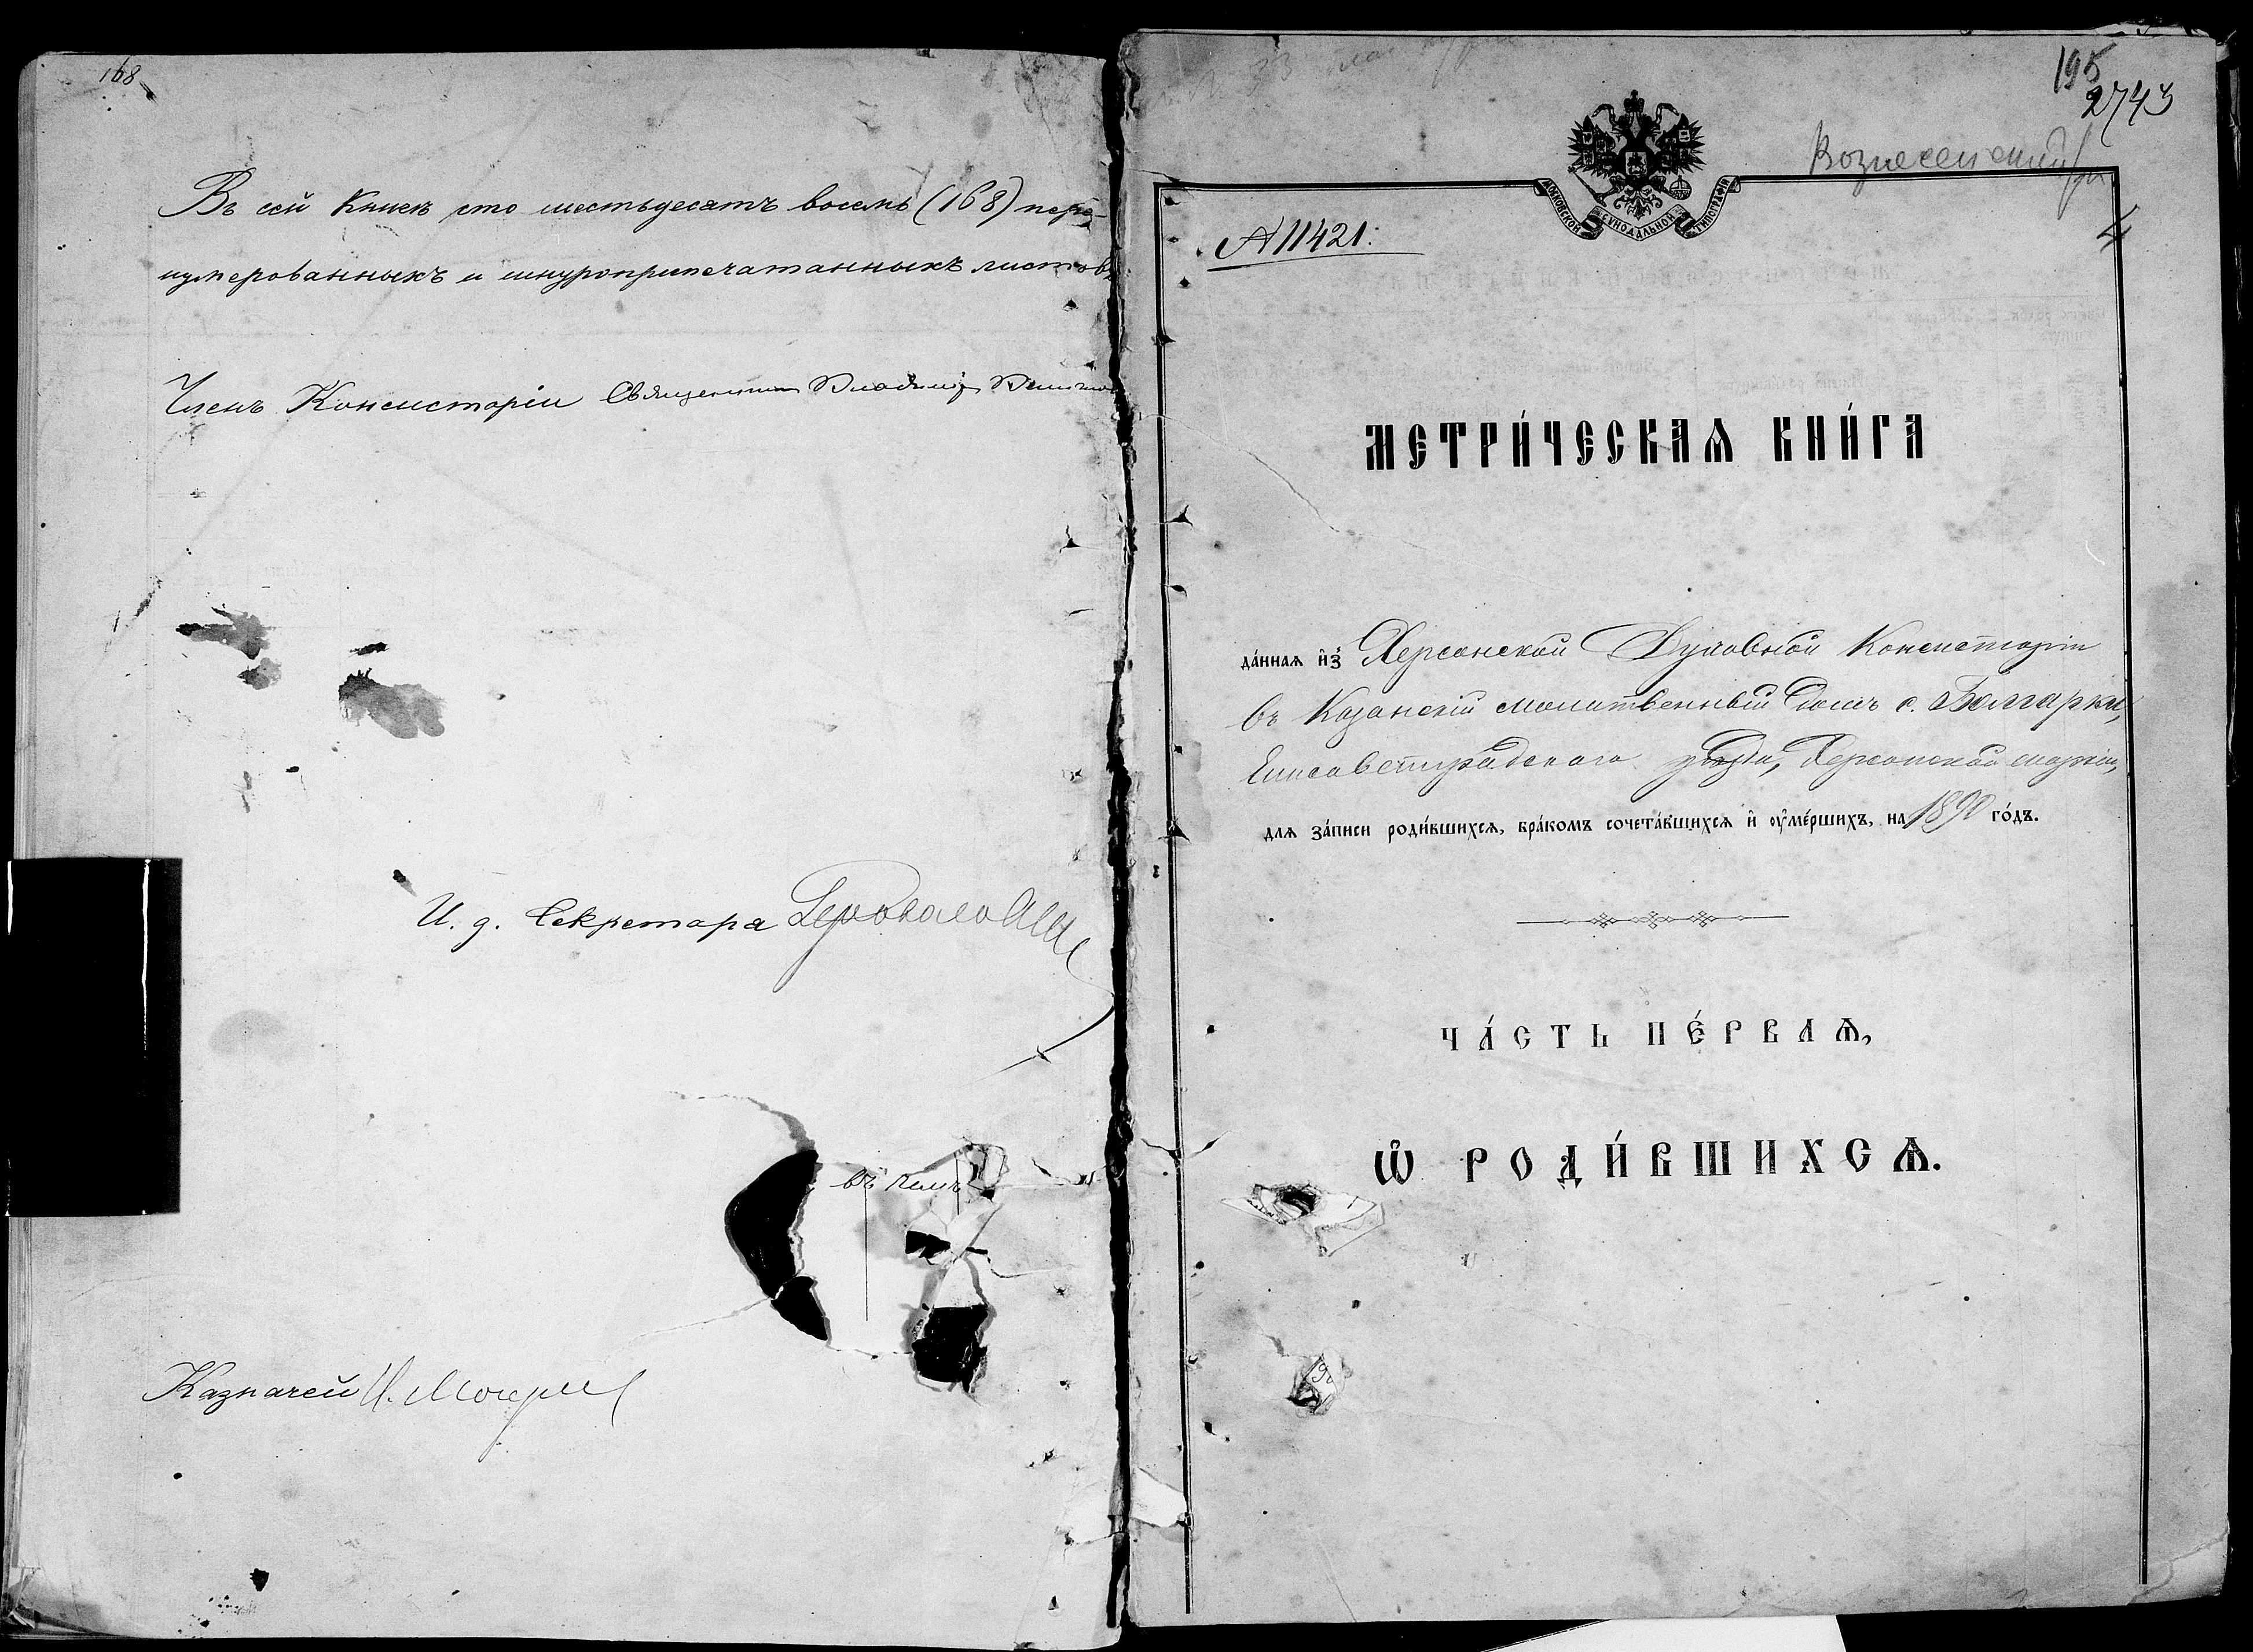 168
Въ сей книгѣ сто шестьдесятъ восемь (168) пере-
нумерованныхъ и шнуроприпечатанныхъ листовъ
Членъ Консисторіи Священникъ Владимір
И. д. Секретаря
въ немъ
Казначей
195
2743
Вознесенскій
4
МОСКОВСКОЙ СѴНОДАЛЬНОЙ ТИПОГРАФІИ
№ 11421.
МЕТРИ́ЧЕСКАѦ КНИ́ГА
да́ннаѧ и҆з̾ Херсонской Духовной Консисторіи
въ Казанскій молитвенный домъ с. Болгарки,
Елисаветградскаго уѣзда, Херсонской епархіи,
для за́писи роди́вшихсѧ, бра́комъ сочета́вшихсѧ и҆ ᲂу҆ме́ршихъ, на 1890 го́дъ.
ЧА́СТЬ ПЕ́РВАѦ,
Ѡ҆ РОДИ́ВШИХСѦ.